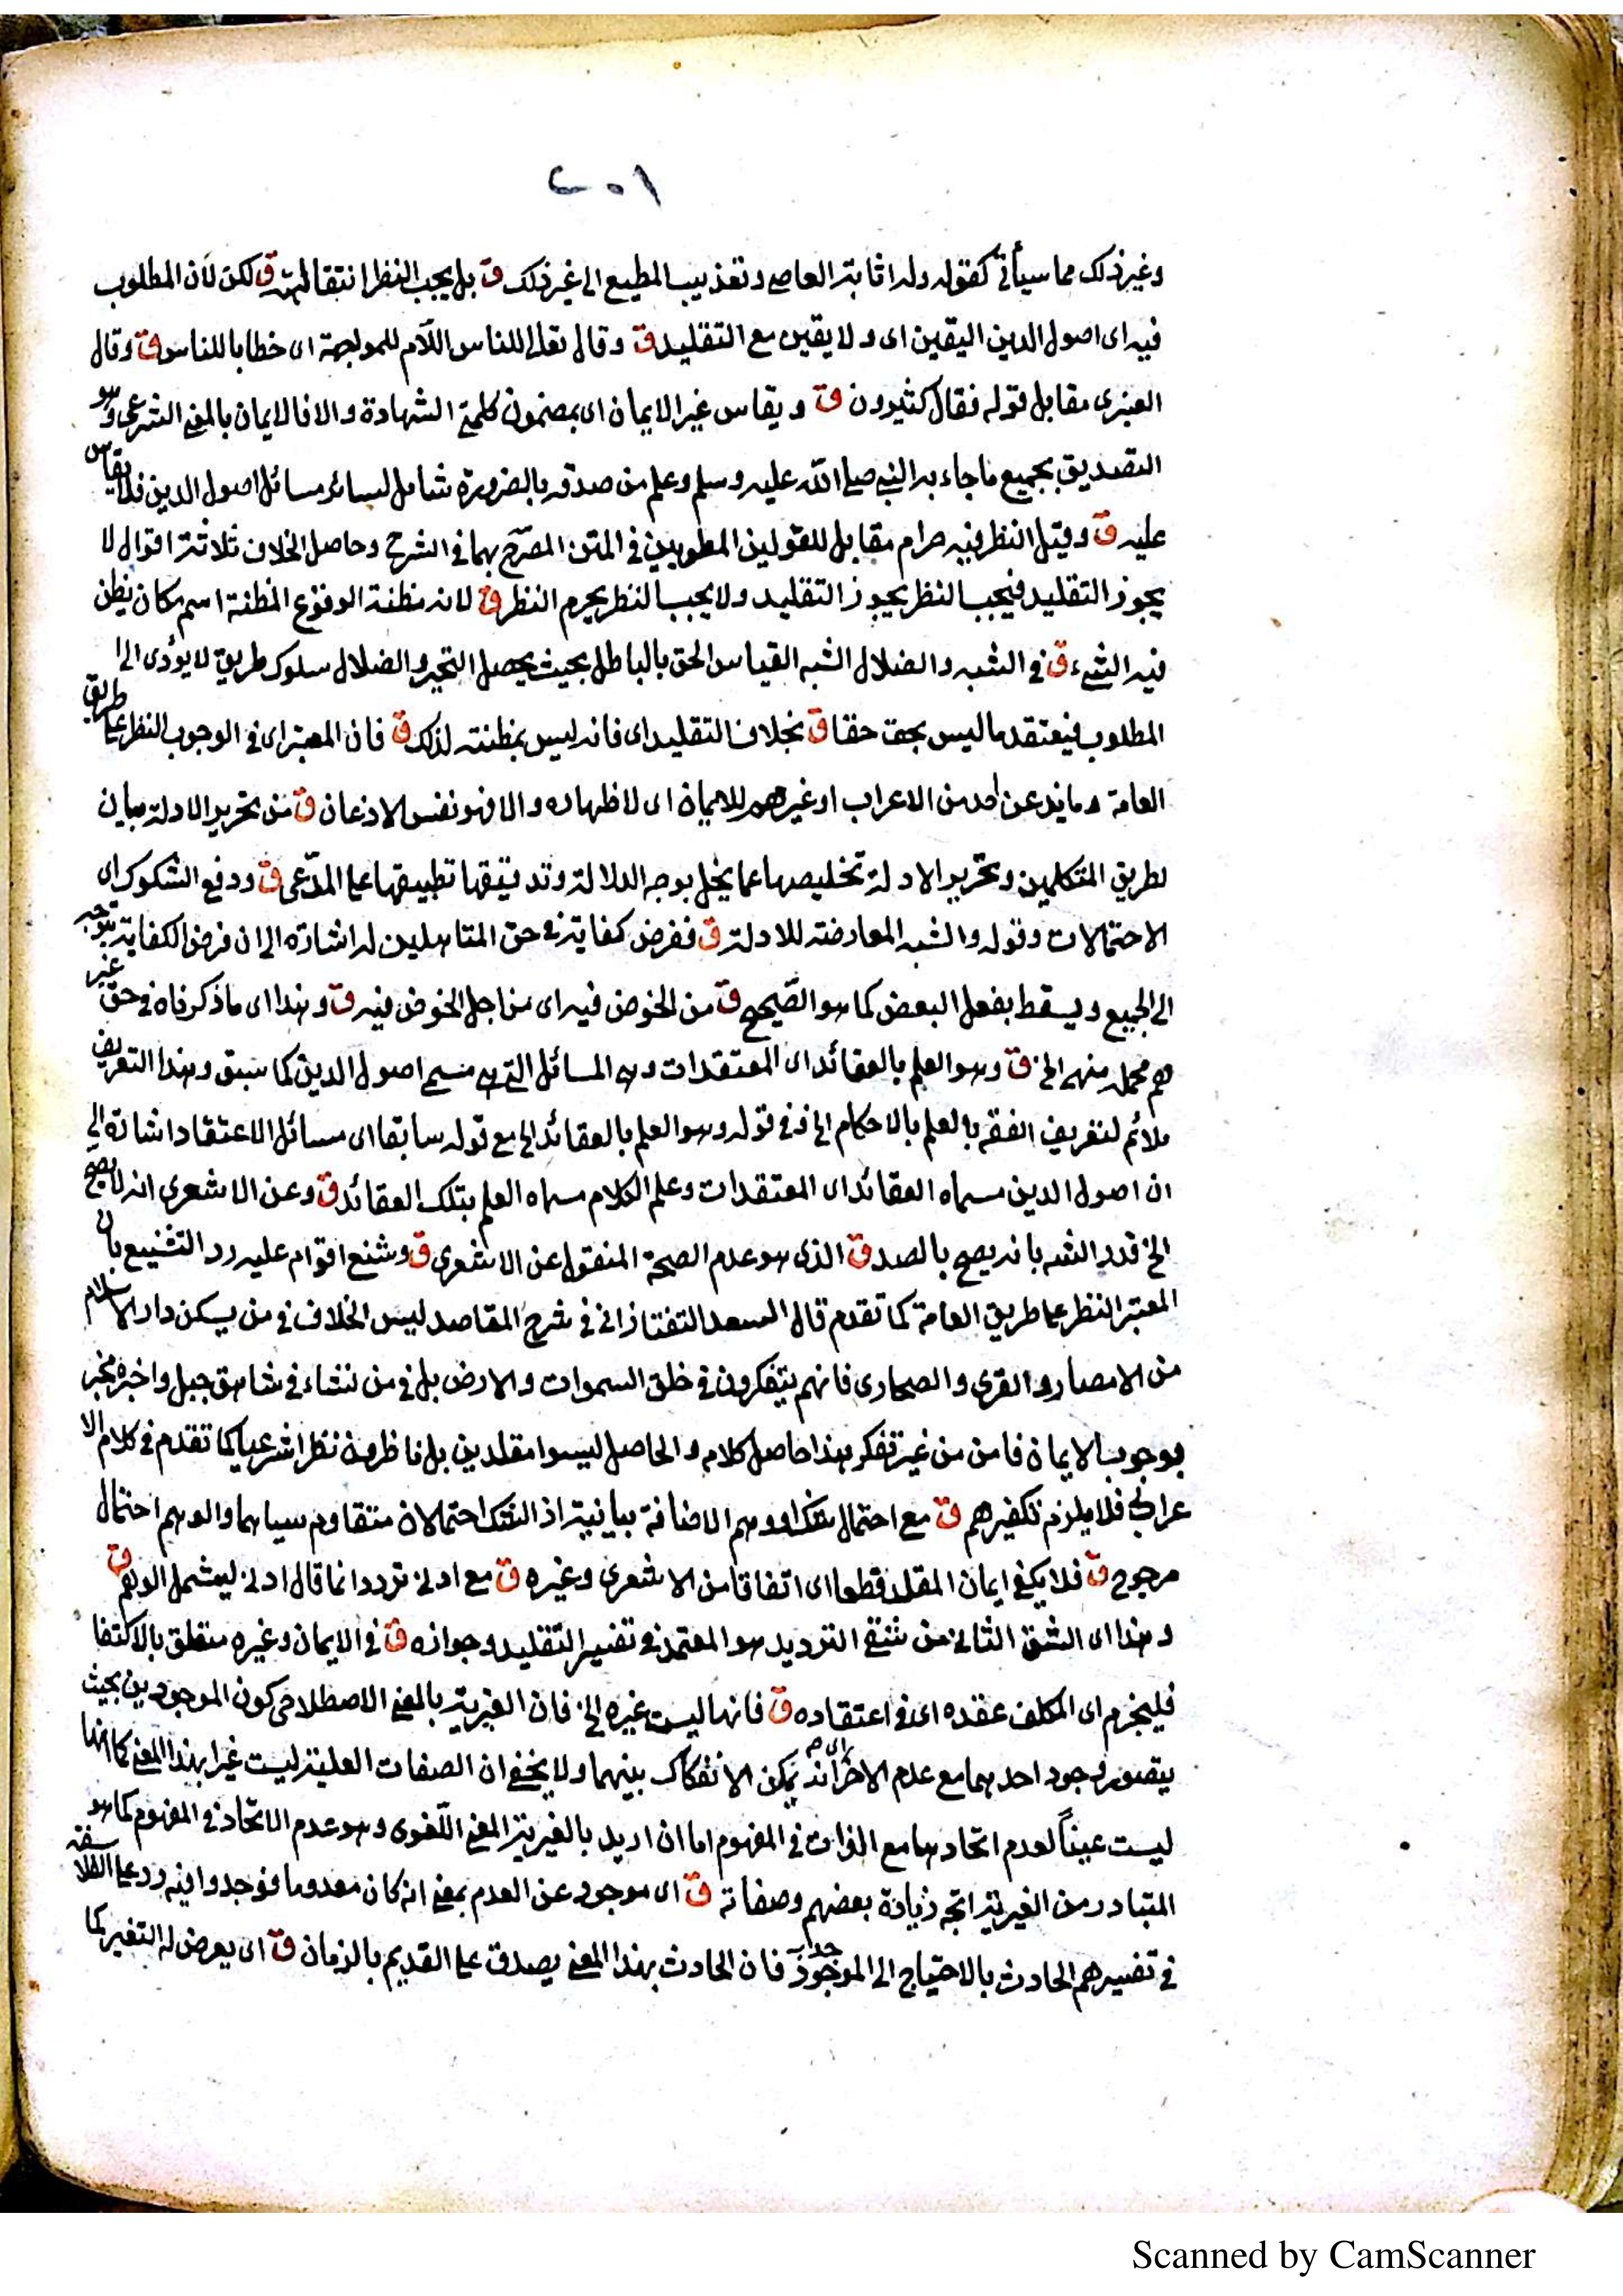 ٢٠١
وغير ذلك مما سيأتى كقوله وله اثابة العاصى وتعذيب المطيع الى غير ذلك ق بل يجب النظر انتقالية ق لكن لأن المطلوب
فيه اى اصول الدين اليقين اى ولا يقين مع التقليد ق وقال تعالى للناس اللام للمواجهة اى خطابا للناس ق وقال
العنبرى مقابل قوله فقال كثيرون ق ويقاس غير الايمان اى بمضمون كلمتى الشهادة والا فالايمان بالمعنى الشرعى وهو
التصديق بجميع ما جاء به النبى صلى الله عليه وسلم وعلم من صدقه بالضرورة شامل لسائر مسائل اصول الدين فلا يقاس
عليه ق وقيل النظر فيه حرام مقابل للقولين المطويين فى المتن المصرح بهما فى الشرح وحاصل الخلاف ثلاثة اقوال لا
يجوز التقليد فيجب النظر يجوز التقليد ولا يجب النظر يحرم النظر ق لانه مظنة الوقوع المظنة اسم مكان يظن
فيه الشىء ق فى الشبه والضلال الشبه القياس الحق بالباطل بحيث يحصل التحير والضلال سلوك طريق لا يؤدى الى
المطلوب فيعتقد ما ليس بحق حقا ق بخلاف التقليد اى فانه ليس بمظنته لذلك ق فان المعتبر اى فى الوجوب النظر على طريق
العامة وما ند عن احد من الاعراب او غيرهم للايمان اى لاظهاره والا فهو نفس الاذعان ق من تحرير الادلة بيان
لطريق المتكلمين وتحرير الادلة تخليصها عما يخل بوجه الدلالة وتدقيقها تطبيقها على المدّعى ق ودفع الشكوك اى
الاحتمالات وقوله والشبه المعارضة للادلة ق ففرض كفاية فى حق المتأهلين له اشارة الى ان فرض الكفاية يتوجه
الى الجميع ويسقط بفعل البعض كما هو الصّحيح ق من الخوض فيه اى من اجل الخوض فيه ق وهذا اى ما ذكرناه فى حق غير
هم محمل نهى الخ ق وهو العلم بالعقائد اى المعتقدات وهى المسائل التى هى مسمى اصول الدين كما سبق وهذا التعريف
ملائم لتعريف الفقه بالعلم بالاحكام الخ ففى قوله وهو العلم بالعقائد الخ مع قوله سابقا اى مسائل الاعتقاد اشارة الى
ان اصول الدين مسماه العقائد اى المعتقدات وعلم الكلام مسماه العلم بتلك العقائد ق وعن الاشعرى انه لا يصح
الخ قدر الشه بانه يصح بالصدق الذى هو عدم الصحة المنقول عن الاشعرى ق وشنع اقوام عليه رد التشنيع بان
المعتبر النظر على طريق العامة كما تقدم قال السعد التفتازانى فى شرح المقاصد ليس الخلاف فى من يسكن دار الاسلام
من الامصار والقرى والصحارى فانهم يتفكرون فى خلق السموات والارض بل فى من نشاء فى شاهق جبل واخبره مخبر
بوجوب الايمان فامن من غير تفكر هذا حاصل كلامه والحاصل ليسوا مقلدين بل ناظرون نظرا شرعيا كما تقدم فى كلام الا
عرابى فلا يلزم تكفيرهم ق مع احتمال شك او وهم الاضافة بيانية اذ الشك احتمالان متقاوم سيامهما والوهم احتمال
مرجوح ق فلا يكفى ايمان المقلد قطعا اى اتفاقا من الاشعرى وغيره ق مع ادنى تردد انما قال ادنى ليشمل الوهم ق
وهذا اى الشق الثانى من شقى الترديد هو المعتمد فى تفسير التقليد وجوازه ق فى الايمان وغيره متعلق بالاكتفا
فليجزم اى المكلف عقده اى فى اعتقاده ق فانها ليست غيره الخ فان الغيرية بالمعنى الاصطلاحى كون الموجودين بحيث
يتصور وجود احدهما مع عدم الاخر اى انه يمكن الانفكاك بينهما ولا يخفى ان الصفات العلية ليست غيرا بهذا المعنى كما انها
ليست عيناً لعدم اتحادها مع الذات فى المفهوم اما ان اريد بالغيرية المعنى اللّغوى وهو عدم الاتحاد فى المفهوم كما هو
المتبادر من الغيرية اتجه زيادة بعضهم وصفاته ق اى موجود عن العدم بمعنى انه كان معدوما فوجد وافيه رد على الفلاسفة
فى تفسيرهم الحادث بالاحتياج الى الموجد فان الحادث بهذا المعنى يصدق على القديم بالزمان ق اى يعرض له التغير كما
Scanned by CamScanner